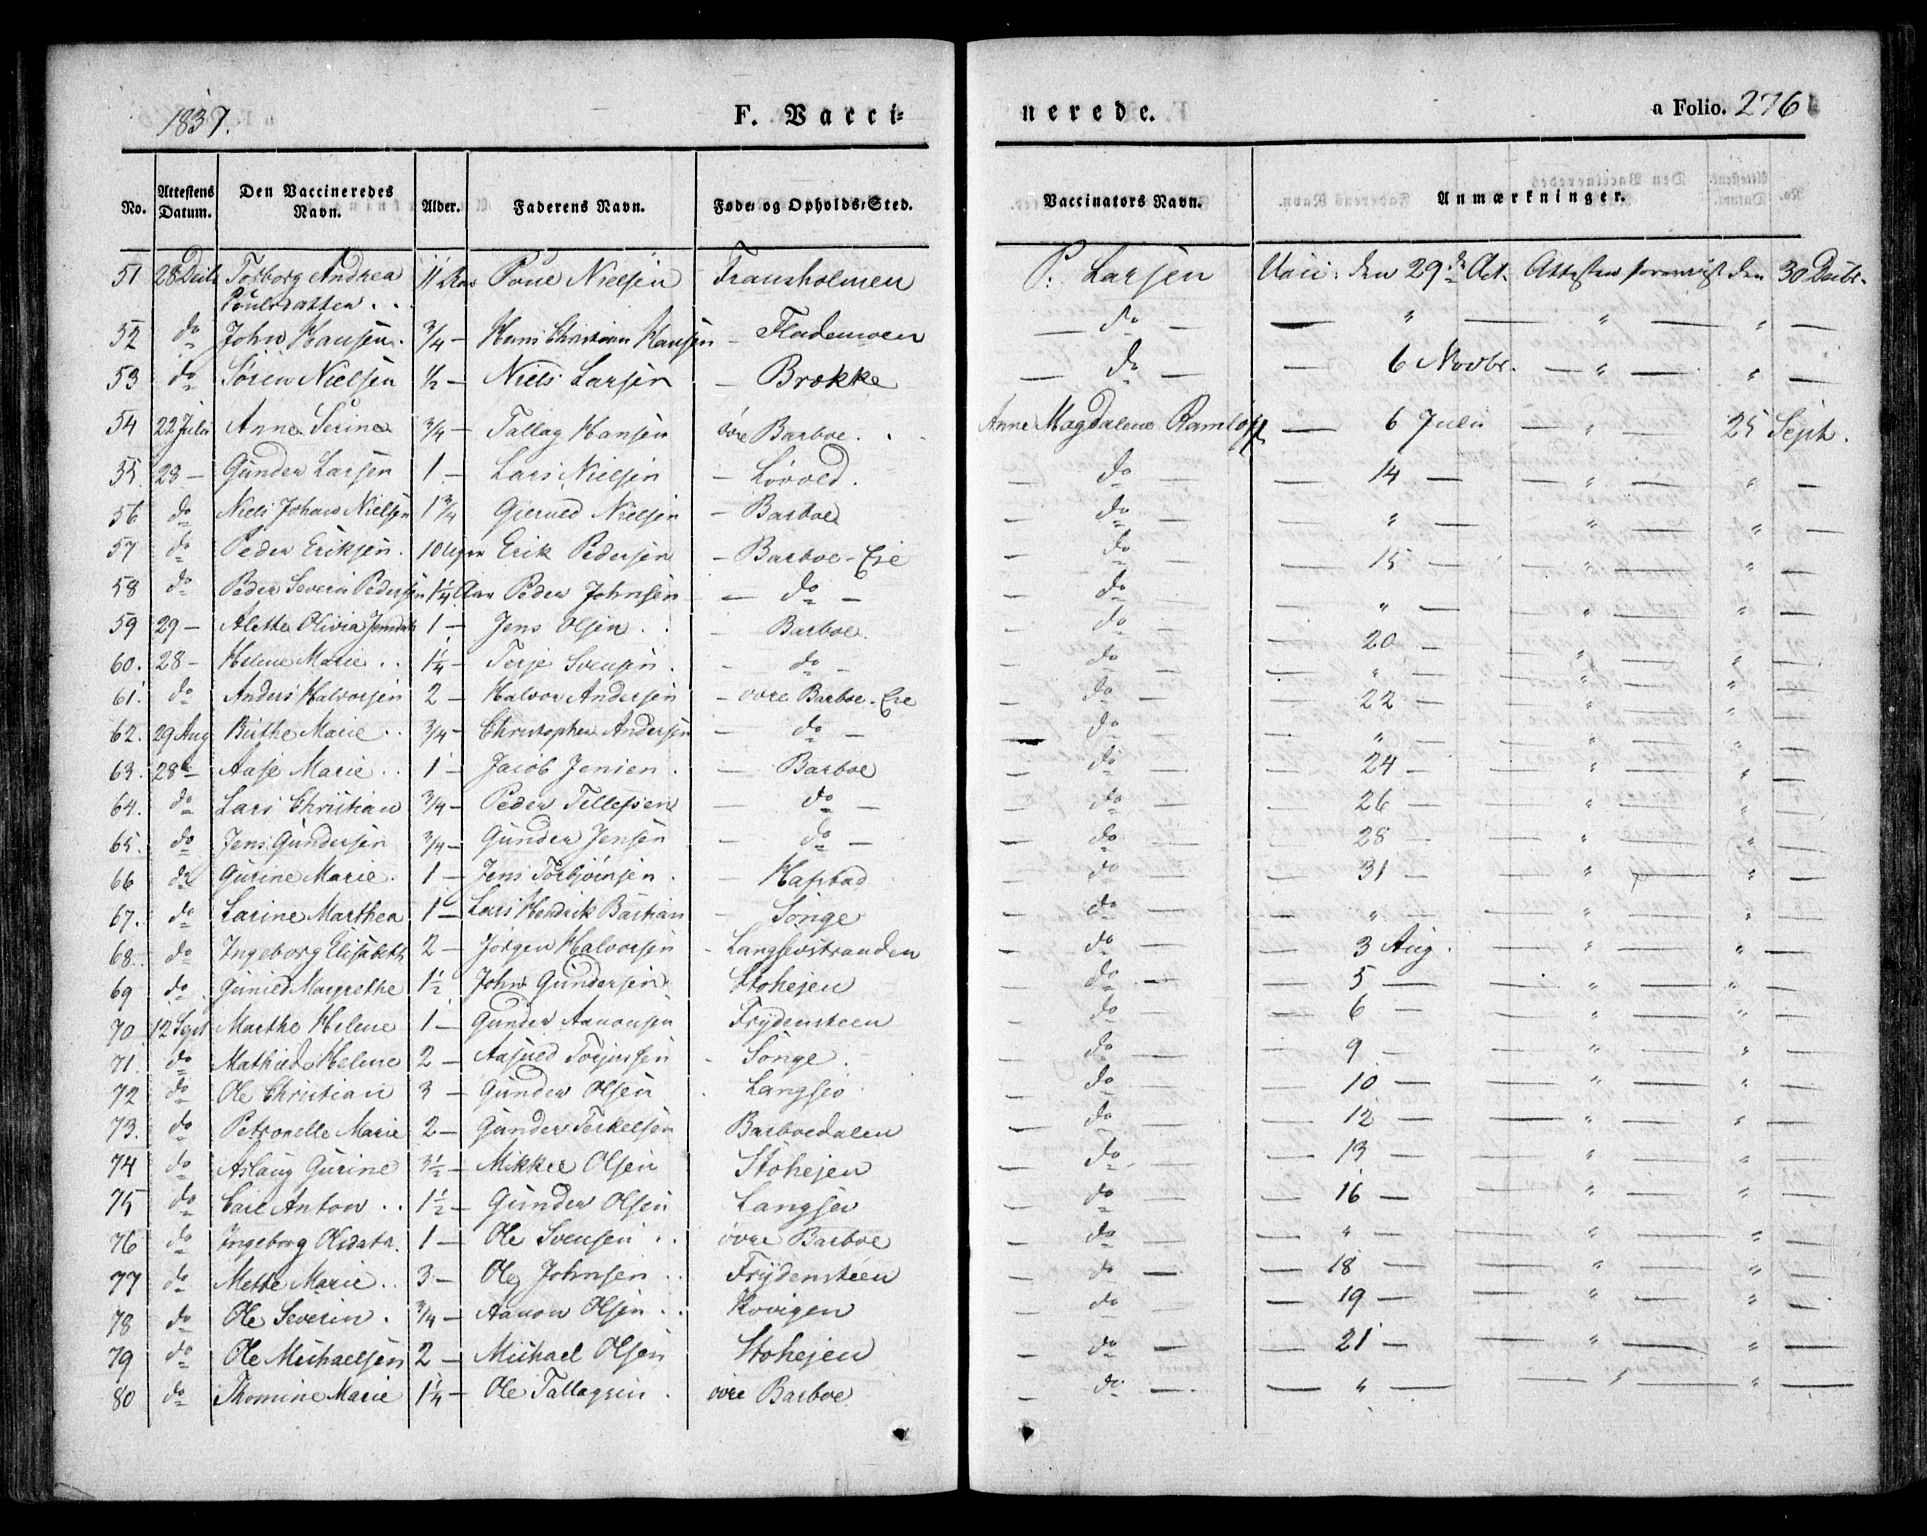 1837.
F. Vacci-
nerede.
a Folio. 276
No. Attestens Datum. Den Vaccineredes Navn. Alder. Faderens Navn. Føde- og Opholds-Sted. Vaccinators Navn. Anmærkninger.
51 28 Decbr Torborg Andrea 11 Aar Poul Nielsen Fransholmen P: Larsen Vacc: den 29de Oct. Attesten forevist den 30 Decbr.
Poulsdatter . .
52 do John Hansen. 3/4 — Hans Christian Hansen — Flademoen — do — — " — " — " —
53 do Søren Nielsen 1/2 — Niels Larsen — Brække — do — — 6 Novbr. — " — " —
54 22 Julii Anne Serine 3/4 — Tallag Hansen øvre Barboe . . Anne Magdalene Ramløff — 6 Julii — " — 25 Sept.
55. 28 — Gunder Larsen 1 — Lars Nielsen — Løvold. — do — — 14 — — " — " —
56 do Niels Johan Nielsen 1 3/4 Gierued Nielsen — Barboe — do — — " — — " — " —
57 do Peder Eriksen. 10 Uger Erik Pedersen — Barboe-Eie — do — — 15 — — " — " —
58 do Peder Severin Pedersen 1 1/4 Aar Peder Johnsen — do — — do — — " — — " — " —
59 29 — Alette Olivia Jensdatr 1 — Jens Olsen . . — Barboe. — do — — 20 — — " — " —
60. 28 — Helene Marie . . 1 1/4 — Terje Svensen . — do — — do — — " — — " — " —
61. do Anders Halvorsen 2 — Halvor Andersen — øvre Barboe-Eie — do — — 22 — — " — " —
62. 29 Aug Birthe Marie . . 3/4 — Christopher Andersen — do — — do — — " — — " — " —
63. 28 — Aase Marie . . 1 — Jacob Jensen . — Barboe — do — — 24 — — " — " —
64. do Lars Christian 3/4 — Peder Tellefsen — do — — do — — 26 — — " — " —
65. do Jens Gundersen 3/4 — Gunder Jensen — do — — do — — 28 — — " — " —
66 do Gurine Marie . 1 — Jens Torbjørnsen . — Hafstad — do — — 31 — — " — " —
67. do Larine Marthea 1 — Lars Hendrik Bastian — Songe — do — — " — — " — " —
68. do Ingeborg Elisabeth 2 — Jørgen Halvorsen — Langsevstranden — do — — 3 Aug. — " — " —
69 do Margrethe 1 1/2 John Gundersen Stohejen — do — — 5 — — " — " —
70. 12 Sept Marthe Helene 1 — Gunder Aanonsen Frydensteen — do — — 6 — — " — " —
71. do Mathilde Helene 2 — Songe . — do — — 9 — — " — " —
72 do Ole Christian 3 — Gunder Olsen . Langsev — do — — 10 — — " — " —
73. do Petronelle Marie 2 — Gunder Terkelsen Barboedalen — do — — 12 — — " — " —
74 do Aslaug Gurine 3 1/2 — Mikkel Olsen Stohejen — do — — 13 — — " — " —
75 do Carl Anton . . 1 1/2 — Gunder Olsen Langsev — do — — 16 — — " — " —
76 do Ingeborg Olsdatr. 1 — Ole Svensen . . øvre Barboe — do — — " — — " — " —
77 do Mette Marie . . 3 — Ole Johnsen . . Frydensteen — do — — 18 — — " — " —
78 do Ole Severin . 3/4 — Aanon Olsen . . Kvvigen — do — — 19 — — " — " —
79 do Ole Michaelsen 2 — Michael Olsen Stohejen — do — — 21 — — " — " —
80 do Thomine Marie 1 1/4 — Ole Tallagsen . øvre Barboe — do — — " — — " — " —